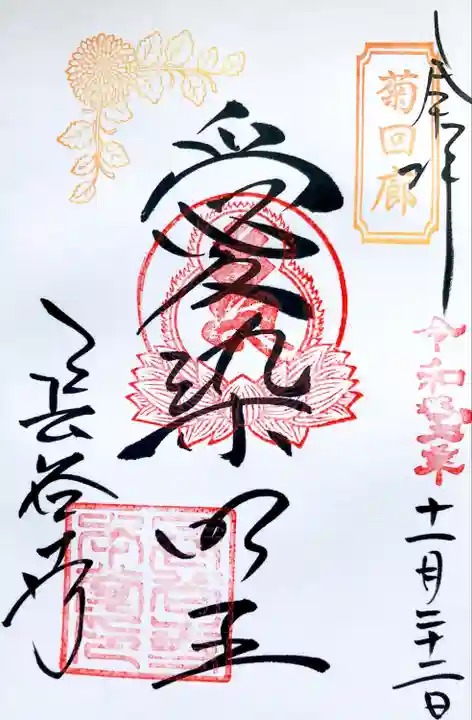 奉拝
菊回廊
十一月二十二日
愛染明王
長谷寺